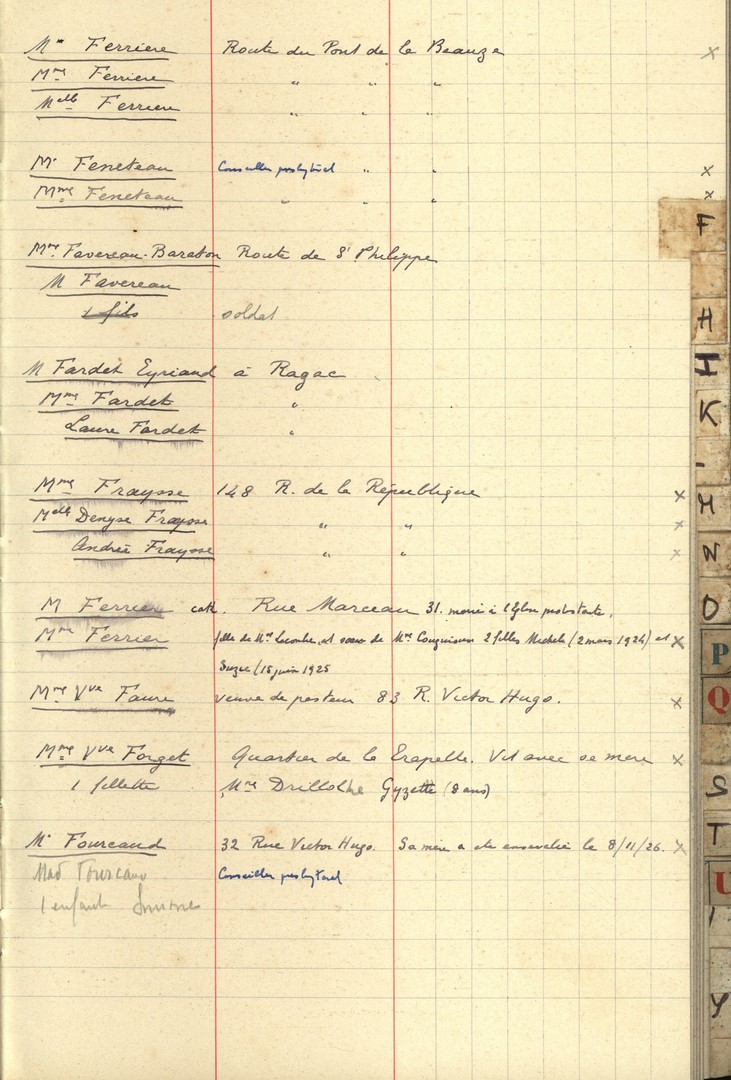 Mr Ferriere Route du Pont de la Beauze x
Mme Ferriere " " "
Melle Ferriere " " "
Mr Feneteau Conseiller presbytéral " " x
Mme Feneteau " " " x
Mme Favereau-Baraton Route de St Philippe
M Favereau
1 fils soldat
M Fardet Eyriaud à Ragac
Mme Fardet "
Laure Fardet "
Mme Fraysse 148 R. de la République x
Melle Denyse Fraysse " " x
Andrée Fraysse " " x
M Ferrier cath. Rue Marceau 31. marié à l'Eglise protestante.
Mme Ferrier fille de Mme Lacombe et soeur de Mme 2 filles Michele (2 mars 1924) et x
Suzie (15 juin 1925
Mme Vve Faure veuve de pasteur 83 R. Victor Hugo. x
Mme Vve Forget Quartier de la Vit avec sa mère x
1 fillette Mme Gyzette (8 ans)
Mr Fourcaud 32 Rue Victor Hugo. Sa mère a été ensevelie le 8/11/26. x
Mad Fourcaud Conseiller presbytéral
1 enfant Simone
F
H
I
K
M
N
O
P
Q
S
T
U
Y